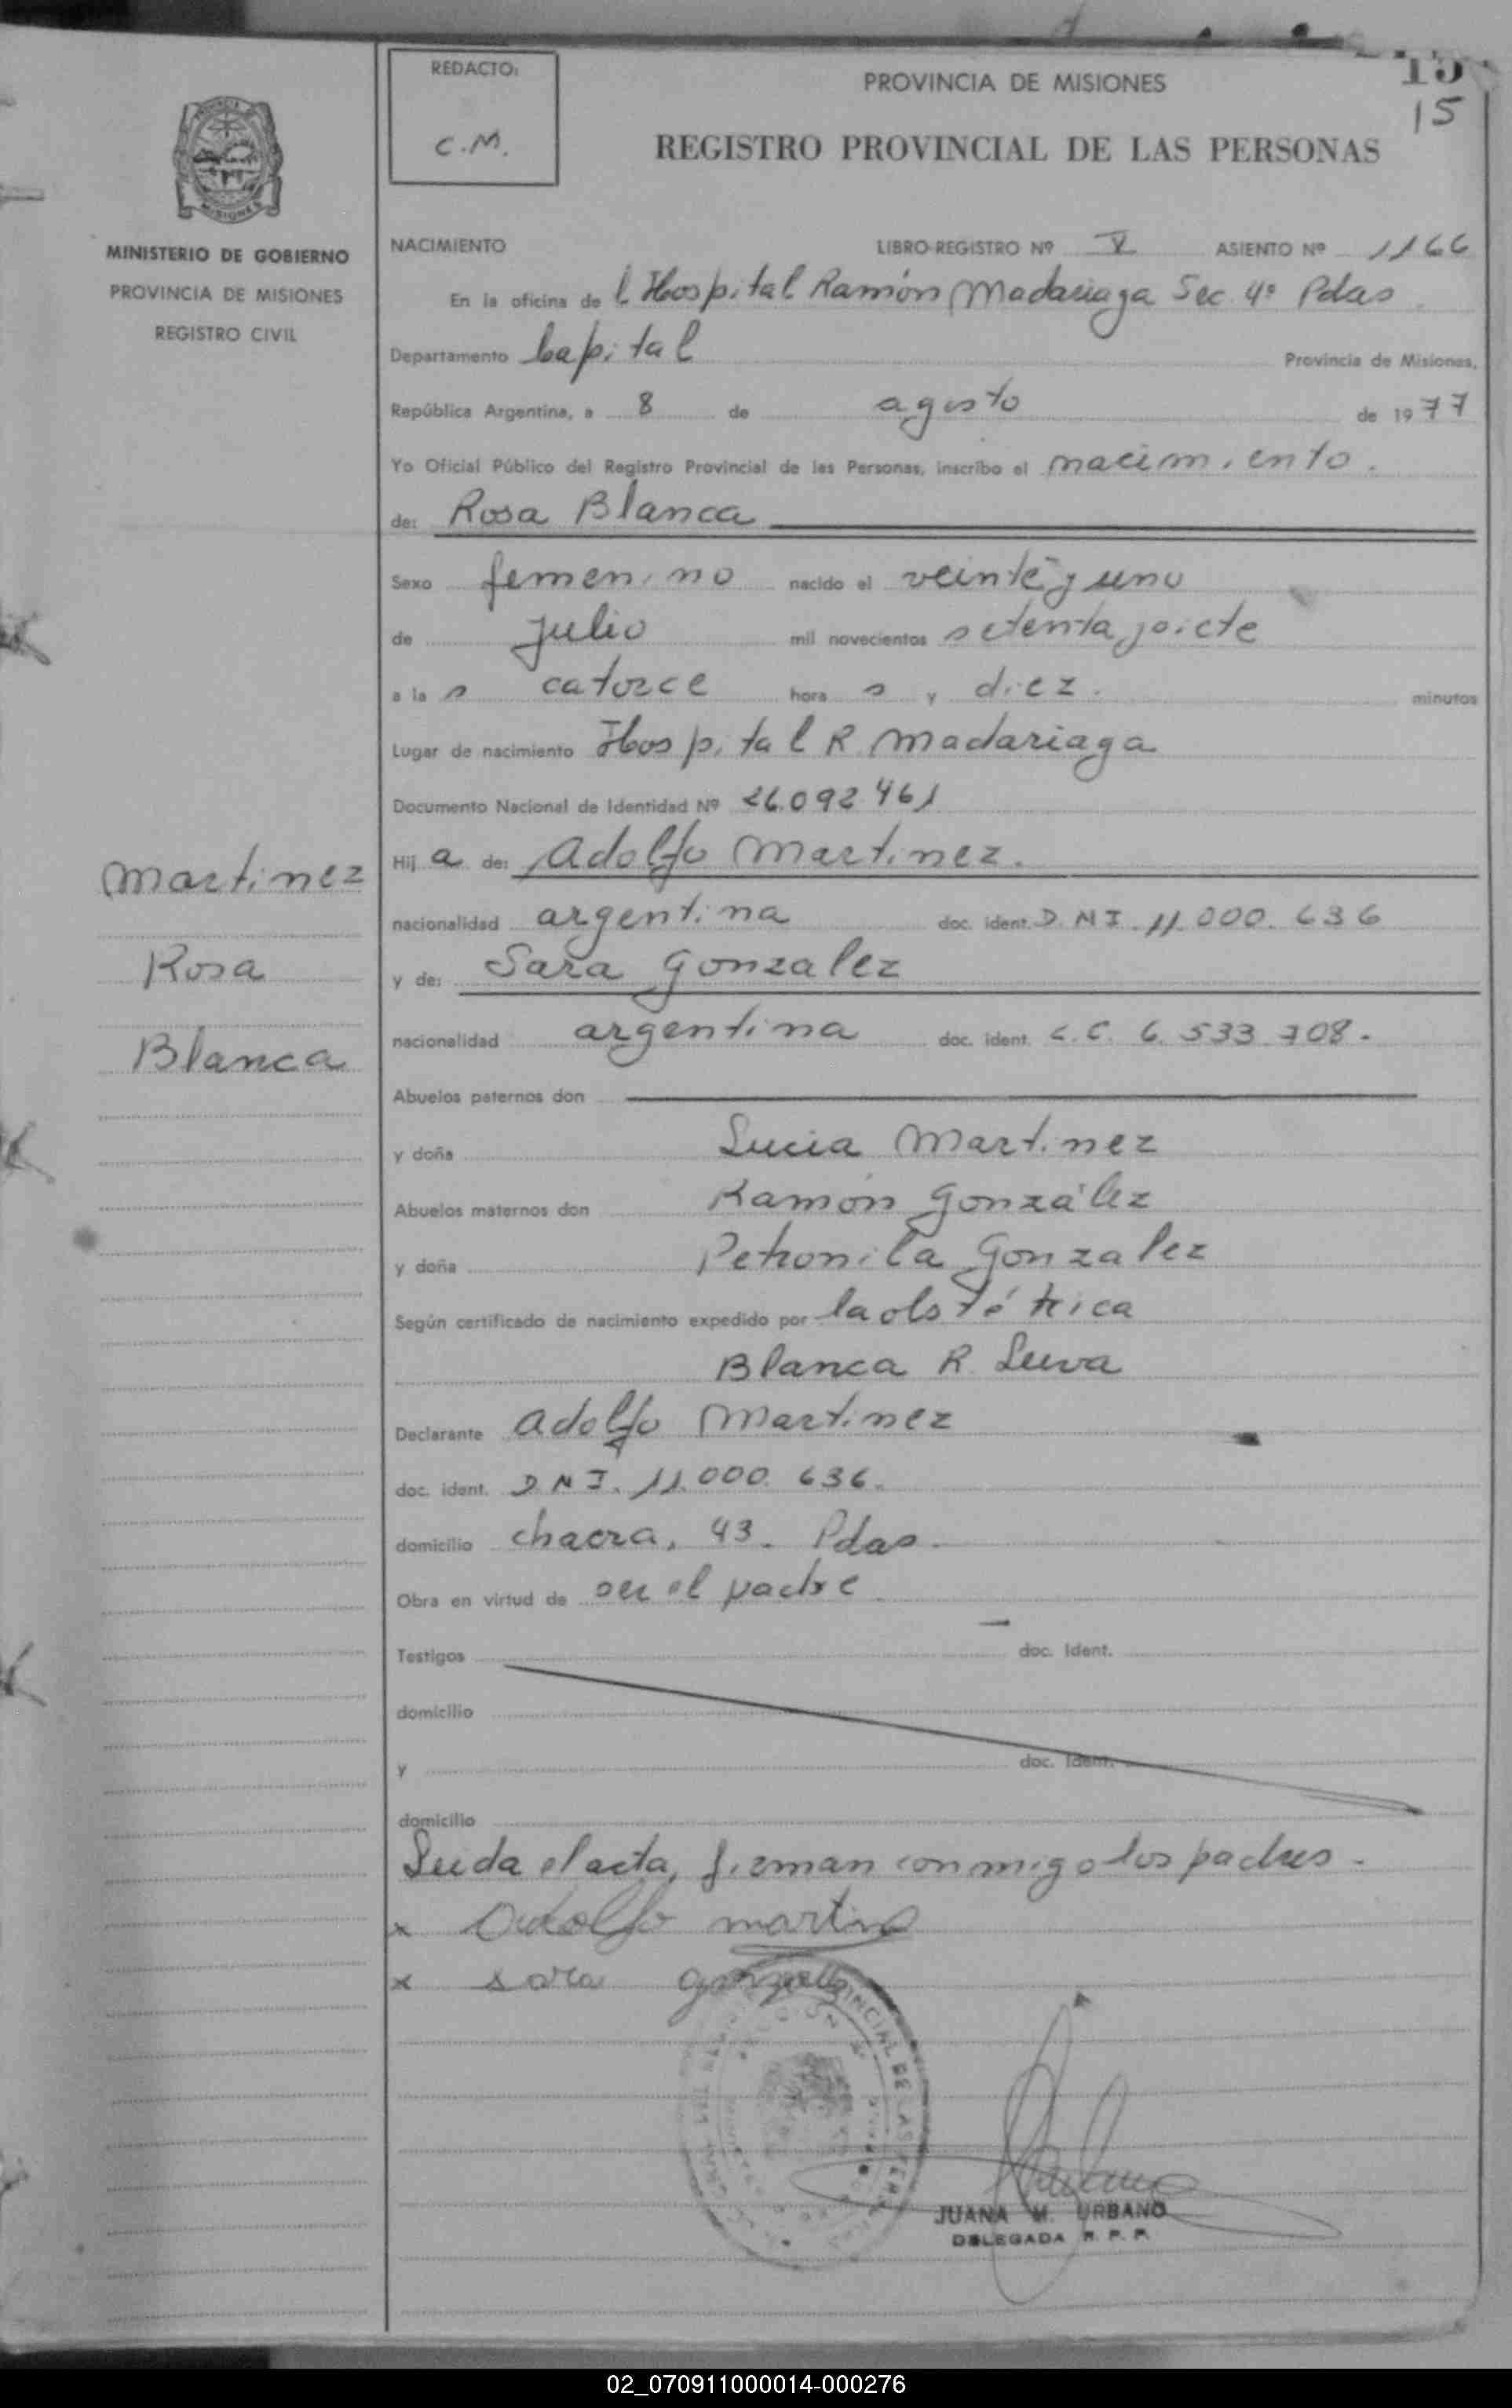 15
REDACTO:
C.M.
PROVINCIA DE MISIONES
15
REGISTRO PROVINCIAL DE LAS PERSONAS
MISIONES
MINISTERIO DE GOBIERNO
PROVINCIA DE MISIONES
REGISTRO CIVIL
NACIMIENTO LIBRO-REGISTRO Nº V ASIENTO Nº 1166
En la oficina de l Hospital Ramón Madariaga Sec. 4ª Pdas
Departamento Capital Provincia de Misiones,
República Argentina, a 8 de agosto de 1977
Yo Oficial Público del Registro Provincial de las Personas, inscribo el nacimiento.
de: Rosa Blanca
Sexo femenino nacido el veinte y uno
de julio mil novecientos setenta y siete
a la s catorce hora s y diez. minutos
Lugar de nacimiento Hospital R Madariaga
Documento Nacional de Identidad Nº 26.092.461
Hij a de: Adolfo Martinez.
nacionalidad argentina doc. ident. D.N.I. 11.000.636
y de: Sara Gonzalez
nacionalidad argentina doc. ident. L.C. 6.533.708.
Abuelos paternos don
y doña Lucia Martinez
Abuelos maternos don Ramón González
y doña Petronila Gonzalez
Según certificado de nacimiento expedido por la obstétrica
Blanca R. Leiva
Declarante Adolfo Martinez
doc. ident. D.N.I. 11.000.636.
domicilio chacra, 43. Pdas.
Obra en virtud de ser el padre
Testigos doc. Ident.
domicilio
y doc. Ident.
domicilio
Leida el acta, firman conmigo los padres.
x Adolfo martinez
x sara gonzalez
Martinez
Rosa
Blanca
JUANA M. URBANO
DELEGADA R. P. P.
02_070911000014-000276